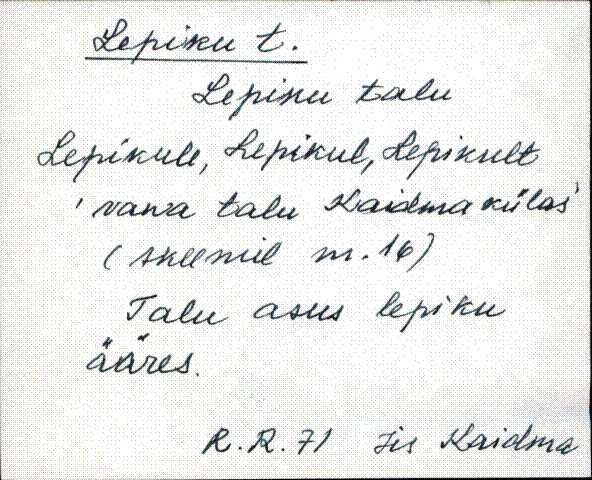 Lepiku t.
Lepiku talu
Lepikule, Lepikul, Lepikult
'vana talu Kaidma külas'
(skeemil nr. 16)
Talu asus lepiku
ääres.
R.R. 71 Jis Kaidma